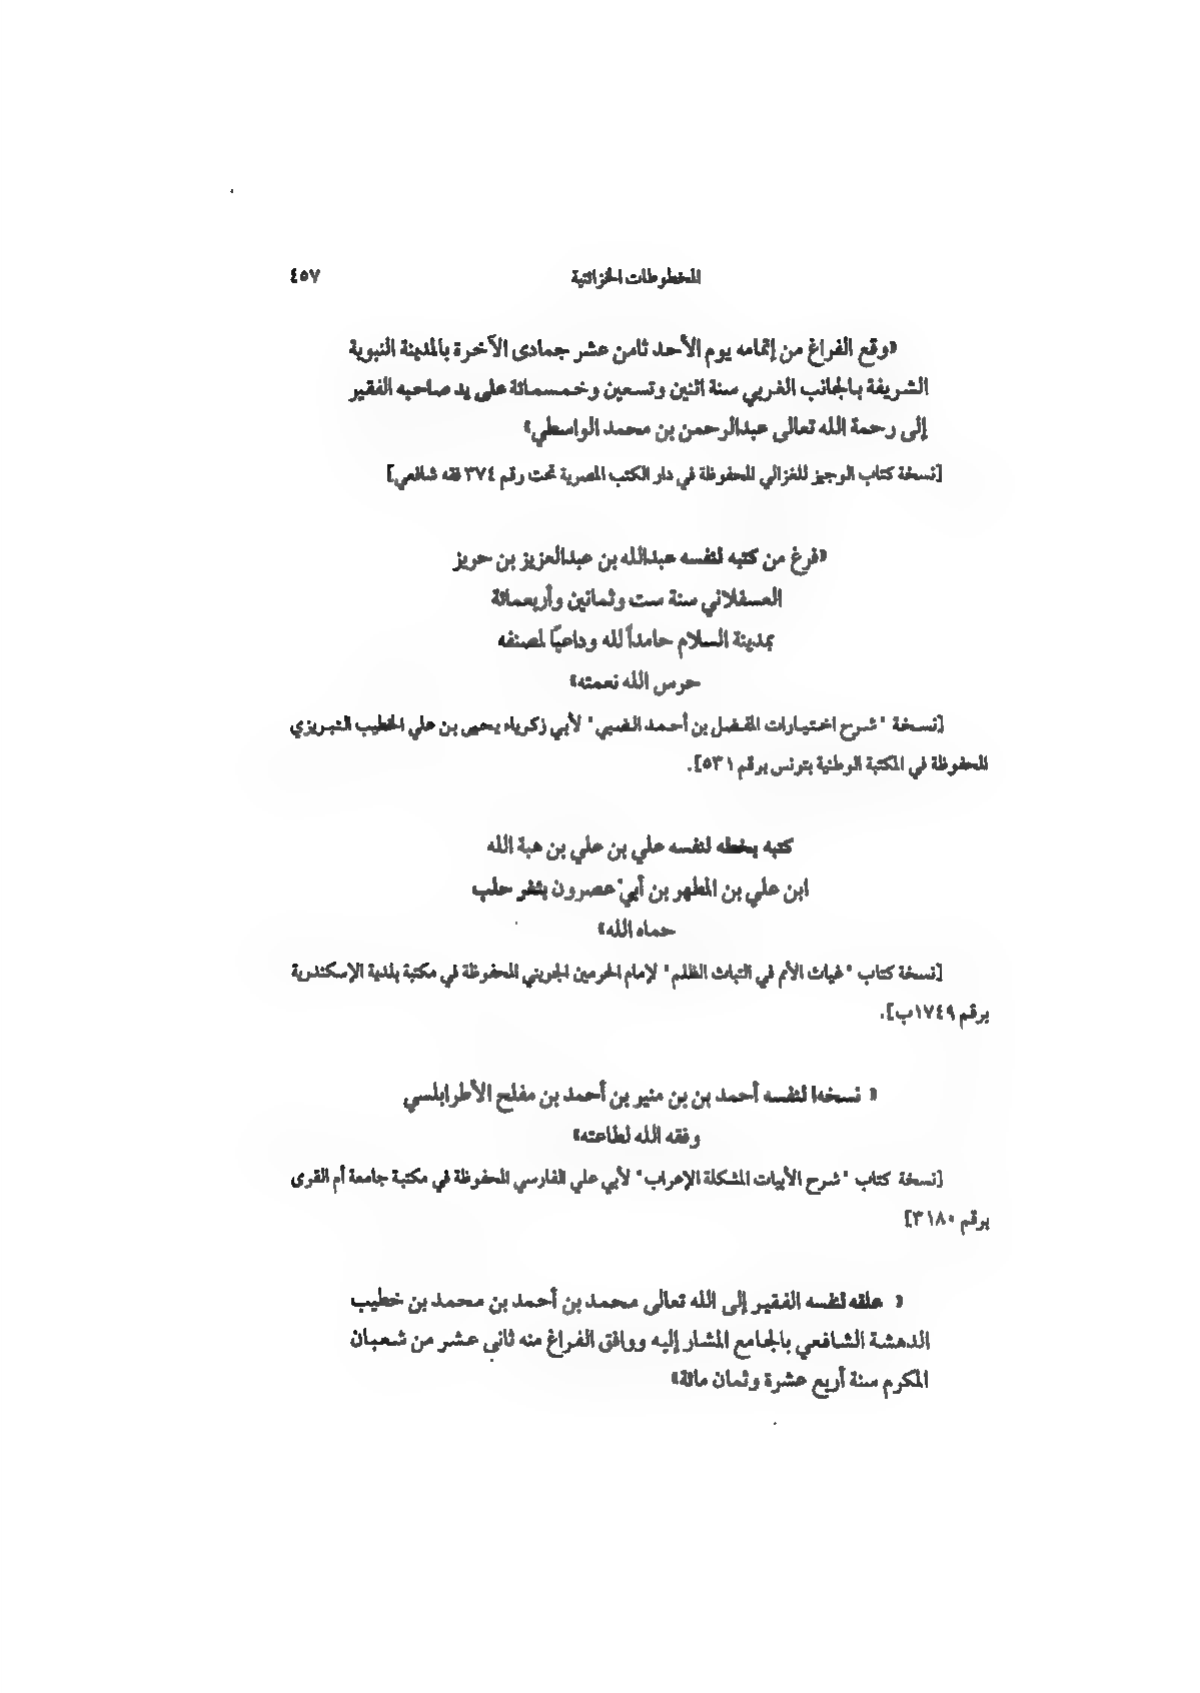 المخطوطات الخزائنية ٤٥٧
«وقع الفراغ من إتمامه يوم الأحد ثامن عشر جمادى الآخرة بالمدينة النبوية
الشريفة بالجانب الغربي سنة اثنين وتسعين وخمسمائة على يد صاحبه الفقير
إلى رحمة الله تعالى عبدالرحمن بن محمد الواسطي»
[نسخة كتاب الوجيز للغزالي المحفوظة في دار الكتب المصرية تحت رقم ٣٧٤ فقه شافعي]
«فرغ من كتبه لنفسه عبدالله بن عبدالعزيز بن حريز
العسقلاني سنة ست وثمانين وأربعمائة
بمدينة السلام حامداً لله وداعيًا لمصنفه
حرس الله نعمته»
[نسخة "شرح اختيارات المفضل بن أحمد الضبي" لأبي زكرياء يحيى بن علي الخطيب التبريزي
المحفوظة في المكتبة الوطنية بتونس برقم ٥٣١].
كتبه بخطه لنفسه علي بن علي بن هبة الله
ابن علي بن المطهر بن أبي عصرون بثغر حلب
حماه الله»
[نسخة كتاب "غياث الأمم في التياث الظلم" لإمام الحرمين الجويني المحفوظة في مكتبة بلدية الإسكندرية
برقم ١٧٤٩ب].
« نسخها لنفسه أحمد بن بن منير بن أحمد بن مفلح الأطرابلسي
وفقه الله لطاعته»
[نسخة كتاب "شرح الأبيات المشكلة الإعراب" لأبي علي الفارسي المحفوظة في مكتبة جامعة أم القرى
برقم ٣١٨٠]
« علقه لنفسه الفقير إلى الله تعالى محمد بن أحمد بن محمد بن خطيب
الدهشة الشافعي بالجامع المشار إليه ووافق الفراغ منه ثاني عشر من شعبان
المكرم سنة أربع عشرة وثمان مائة»